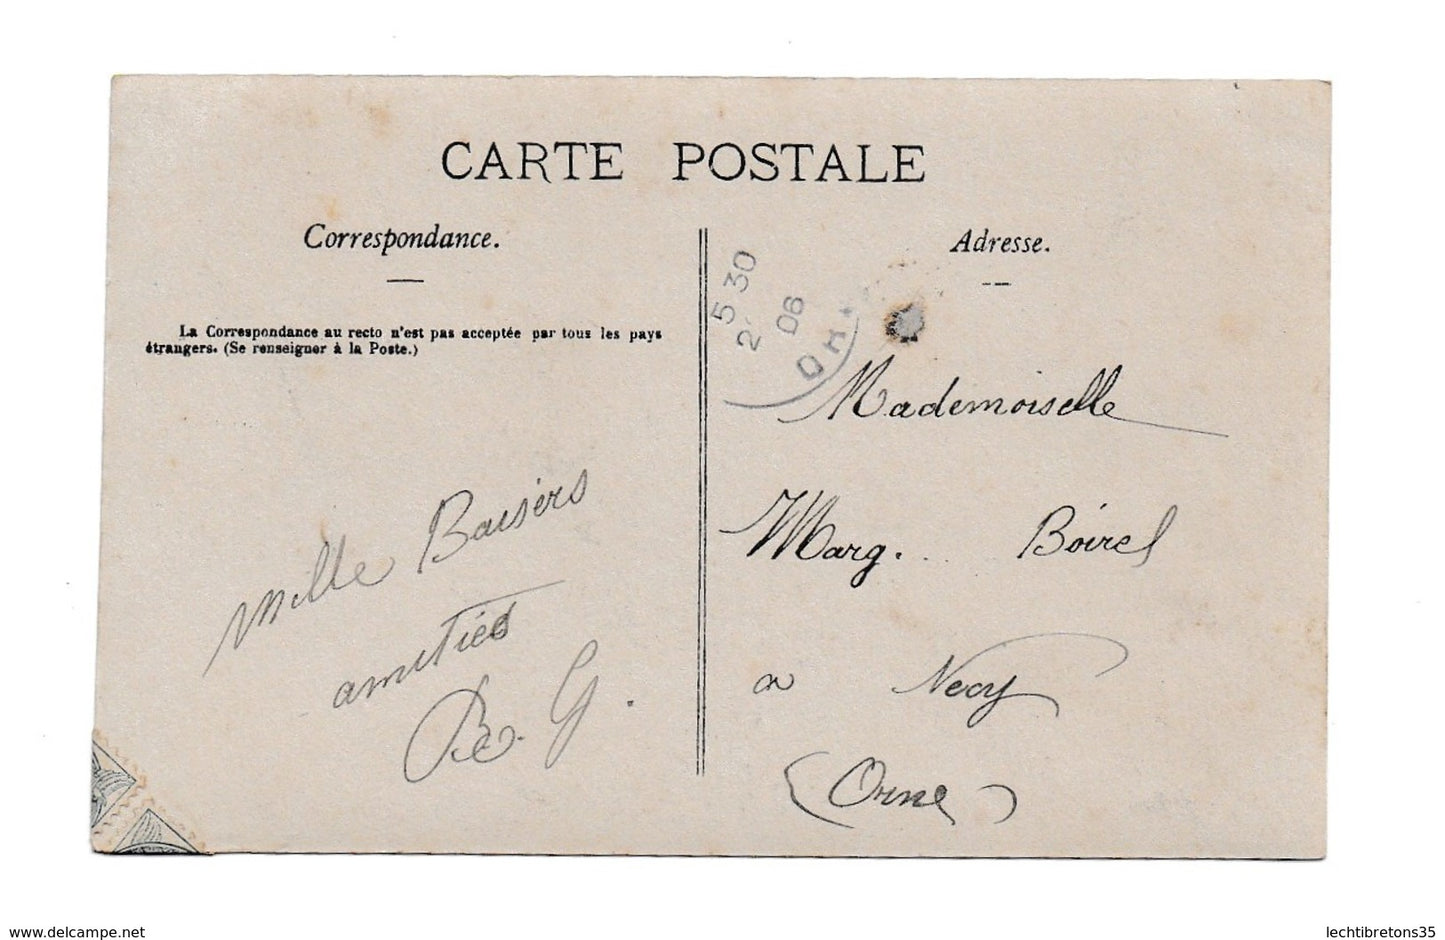 CARTE POSTALE
Correspondance.
La Correspondance au recto n'est pas acceptée par tous les pays
étrangers. (Se renseigner à la Poste.)
Mille Baisers
amitiés
G.
Adresse.
5 30
2
06
Mademoiselle
Marg. Boirel
a Necy
(Orne)
www.delcampe.net
lechtibretons35